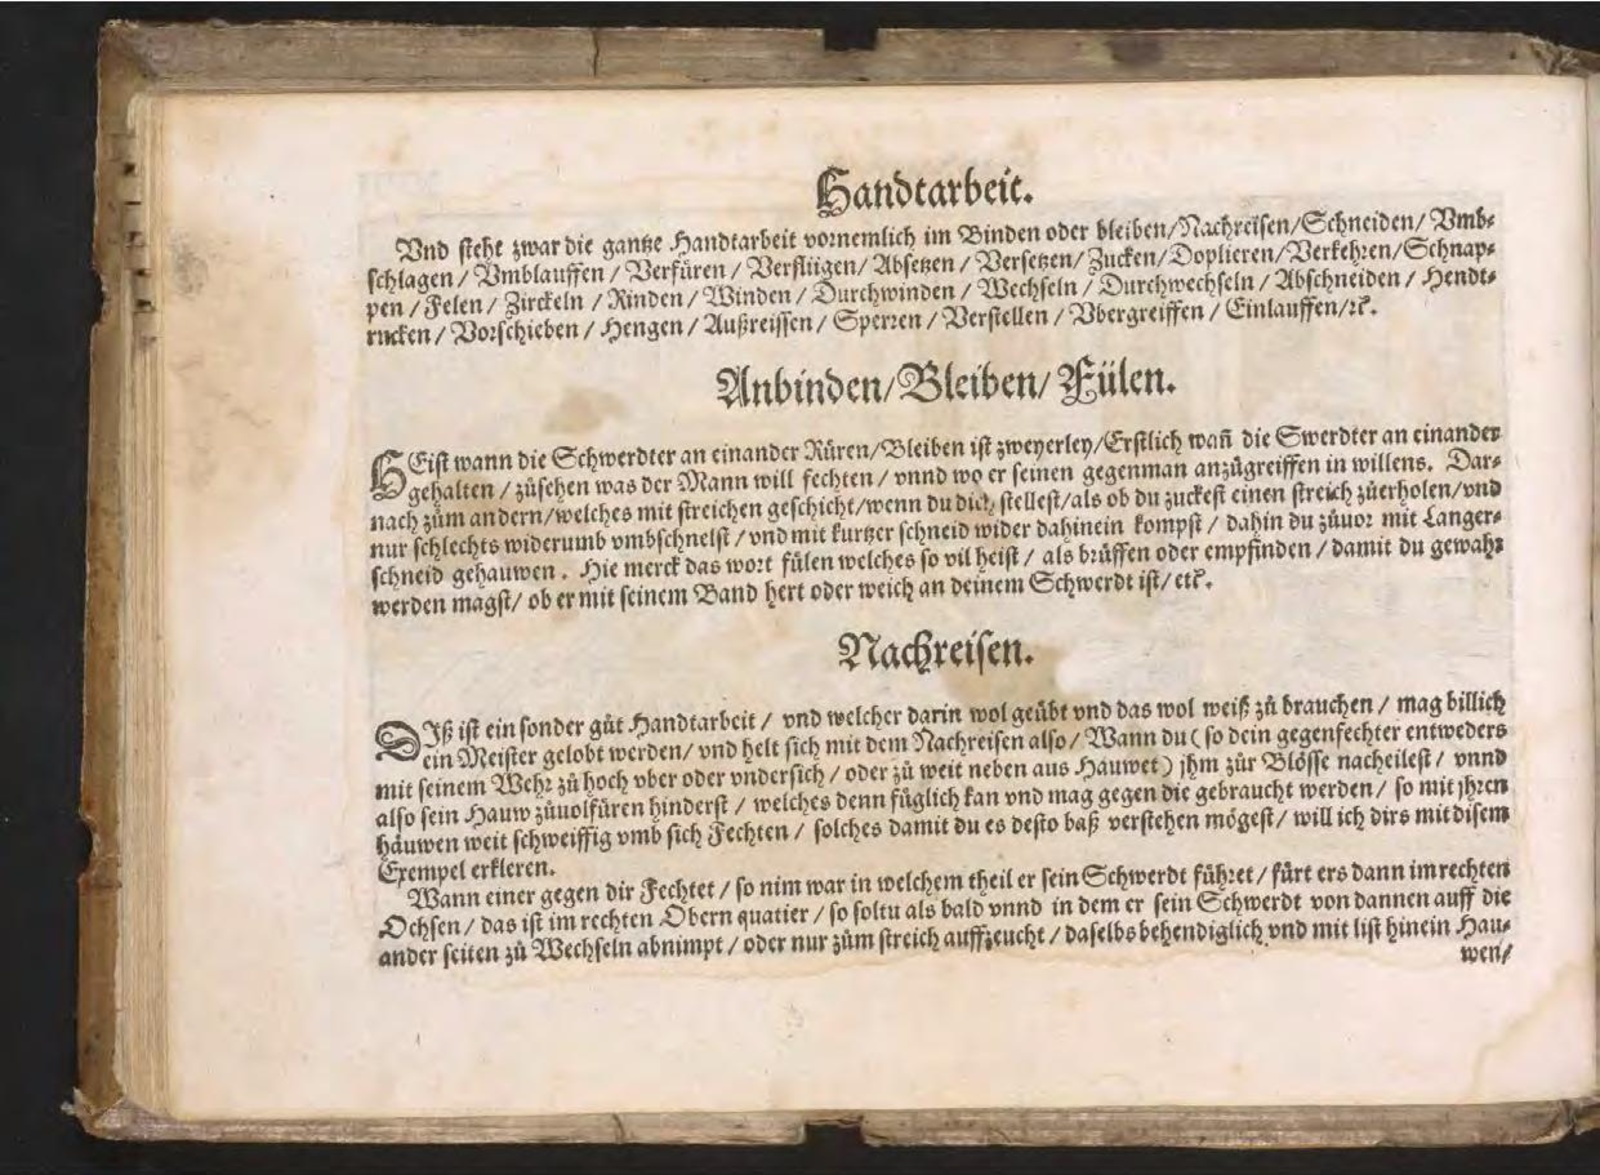 Handtarbeit.
Vnd steht zwar die gantze Handtarbeit vornemlich im Binden oder bleiben/Nachreisen/Schneiden/ Vmb⸗
schlagen / Vmblauffen / Verfüren / Verfliigen/ Absetzen / Versetzen/ Zucken/Doplieren/Verkehren/Schnap⸗
pen / Felen / Zirckeln / Rinden / Winden / Durchwinden / Wechseln / Durchwechseln / Abschneiden / Hendt⸗
rucken / Vorschieben / Hengen / Außreissen / Sperren / Verstellen / Vbergreiffen / Einlauffen/ꝛc.
Anbinden/Bleiben/ Fülen.
HEist wann die Schwerdter an einander Rüren/Bleiben ist zweyerley/Erstlich wañ die Swerdter an einander
gehalten / zůsehen was der Mann will fechten / vnnd wo er seinen gegenman anzůgreiffen in willens. Dar⸗
nach zům andern/welches mit streichen geschicht/wenn du dich stellest/als ob du zuckest einen streich zůerholen/vnd
nur schlechts widerumb vmbschnelst / vnd mit kurtzer schneid wider dahinein kompst / dahin du zůuor mit Langer⸗
schneid gehauwen. Hie merck das wort fülen welches so vil heist / als brüffen oder empfinden / damit du gewahr
werden magst/ ob er mit seinem Band hert oder weich an deinem Schwerdt ist/ etc.
Nachreisen.
DIß ist ein sonder gůt Handtarbeit / vnd welcher darin wol geübt vnd das wol weiß zů brauchen / mag billich
ein Meister gelobt werden/ vnd helt sich mit dem Nachreisen also / Wann du ( so dein gegenfechter entweders
mit seinem Wehr zů hoch vber oder vndersich / oder zů weit neben aus Hauwet ) jhm zůr Blösse nacheilest / vnnd
also sein Hauw zůuolfüren hinderst / welches denn füglich kan vnd mag gegen die gebraucht werden / so mit jhren
häuwen weit schweiffig vmb sich Fechten / solches damit du es desto baß verstehen mögest / will ich dirs mit disem
Exempel erkleren.
Wann einer gegen dir Fechtet / so nim war in welchem theil er sein Schwerdt führet / fürt ers dann im rechten
Ochsen / das ist im rechten Obern quatier / so soltu als bald vnnd in dem er sein Schwerdt von dannen auff die
ander seiten zů Wechseln abnimpt / oder nur zům streich auffzeucht / daselbs behendiglich vnd mit list hinein Hau⸗
wen/